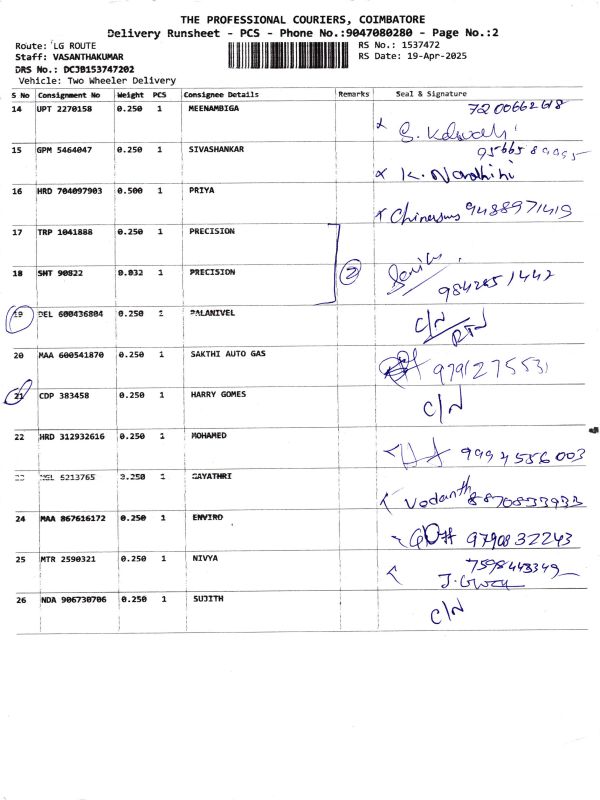 THE PROFESSIONAL COURIERS, COIMBATORE
Delivery Runsheet - PCS - Phone No.:9047080280 - Page No.:2
Route: LG ROUTE
RS No.: 1537472
Staff: VASANTHAKUMAR
RS Date: 19-Apr-2025
DRS No.: DCJB153747202
Vehicle: Two Wheeler Delivery
S No Consignment No Weight PCS Consignee Details Remarks Seal & Signature
14 UPT 2270158 0.250 1 MEENAMBIGA 7200662618
15 GPM 5464047 0.250 1 SIVASHANKAR
K. Nandhini
16 HRD 704097903 0.500 1 PRIYA 9488971419
17 TRP 1041888 0.250 1 PRECISION
18 SMT 90822 0.032 1 PRECISION 2
19 DEL 600436804 0.250 1 PALANIVEL C/N
RTN
20 MAA 600541870 0.250 1 SAKTHI AUTO GAS 9791275531
21 CDP 383458 0.250 1 HARRY GOMES C/N
22 HRD 312932616 0.250 1 MOHAMED 9994556003
5213765 0.250 1 GAYATHRI 8870833933
24 MAA 867616172 0.250 1 ENVIRO 9790832243
25 MTR 2590321 0.250 1 NIVYA 7598443349
26 NDA 906730706 0.250 1 SUJITH C/N